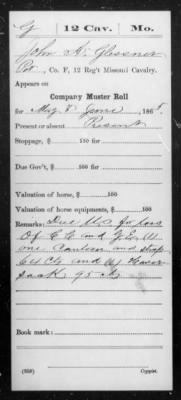 G 12 Cav. Mo.
John H. Glessner
Pvt, Co. F, 12 Reg't Missouri Cavalry.
Appears on
Company Muster Roll
for May & June, 1865.
Present or absent Present
Stoppage, $ 100
Due Gov't, $ 100
Valuation of horse, $ 100
Valuation of horse equipments, $ 100
Remarks: Due U.S. for loss
Of C C and G. E. 
one Canteen and strap
64 cts and Haver
sack 95 cts
Book mark:
(358) Copyist.